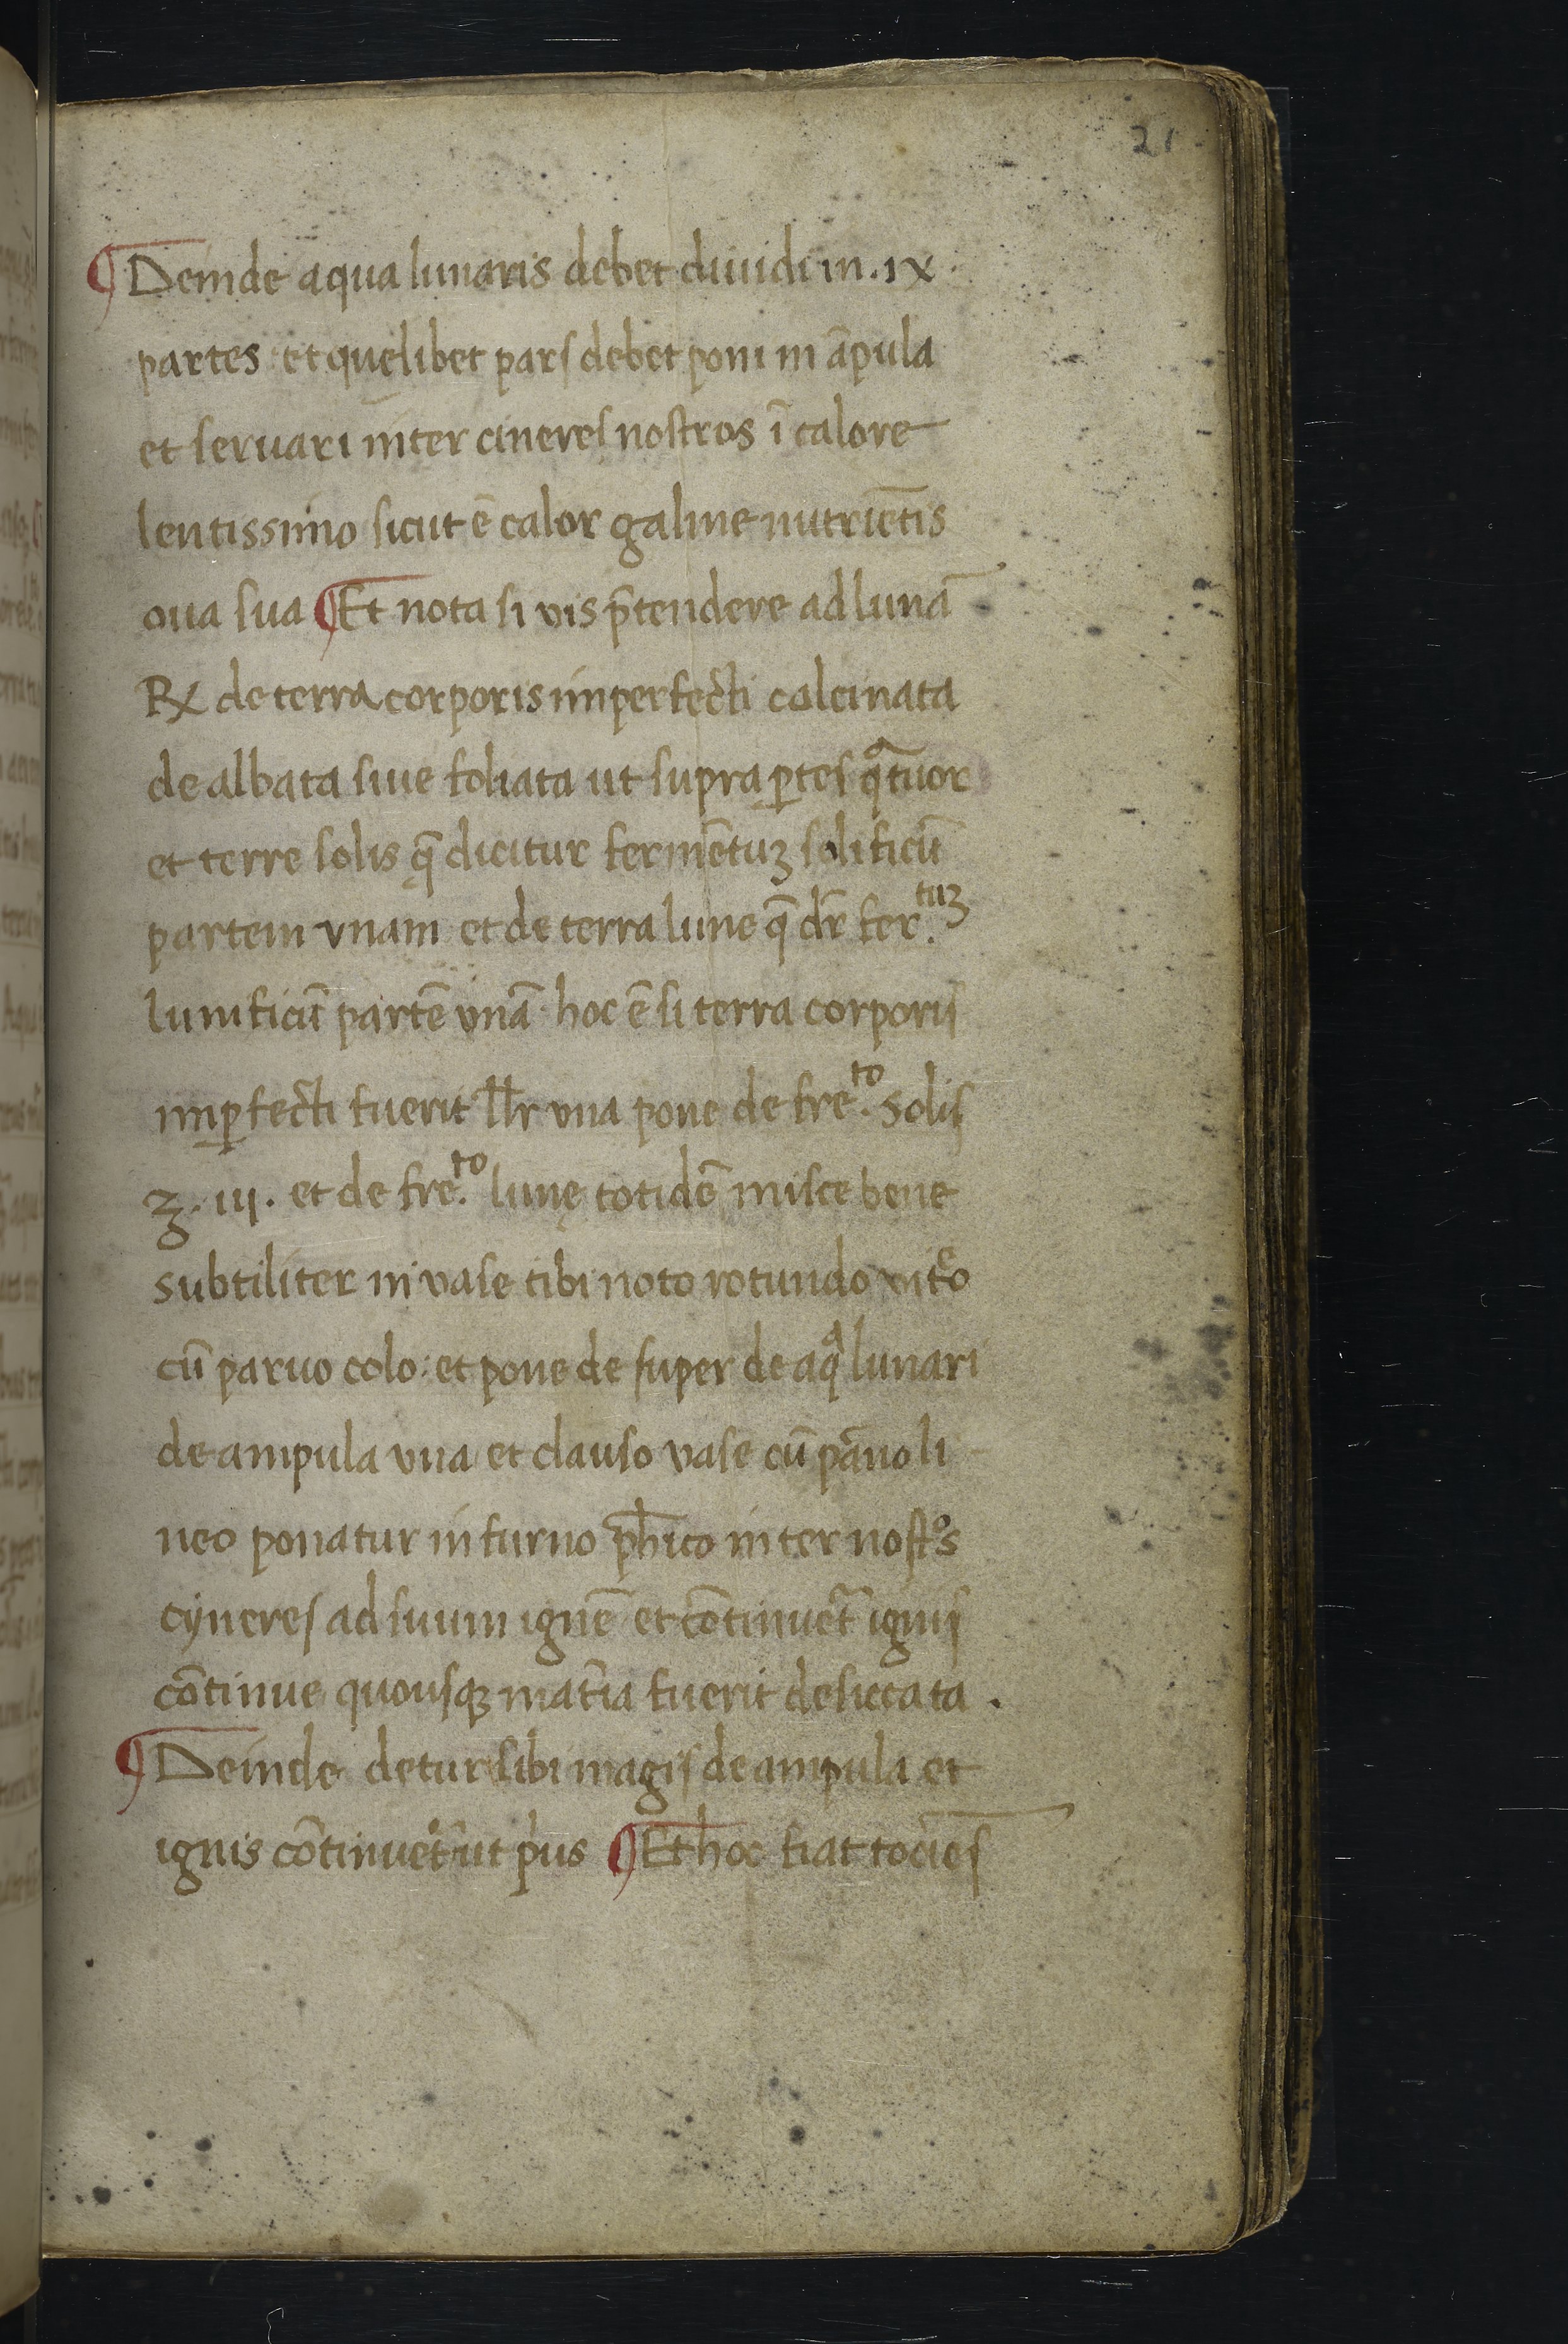 21
¶ Deinde aqua lunaris debet diuidi in .ix.
partes et quelibet pars debet poni in āpula
et seruari inter cineres nostros ī calore
lentissimo sicut ē calor galine nutriētis
oua sua ¶ Et nota si vis p̄tendere ad lunā
Rx de terra corporis imperfecti calcinata
de albata siue foliata ut supra ꝑtes qᵃtuor
et terre solis q̄ dicitur fermētuʒ solificū
partem vnam et de terra lune q̄ dr̄ fer.ᵗᵘʒ
lunificū partē vnā hoc ē si terra corporis
imꝑfecti fuerit vna pone de fre.ᵗᵒ solis
ʒ. iij. et de fre.ᵗᵒ lunę totidē misce bene
subtiliter in vase tibi noto rotundo vitͤo
cū paruo colo: et pone de super de aqᵃ lunari
de ampula vna et clauso vase cū pāno li
neo ponatur in furno ph̄ico inter nostͦs
cyneres ad suum ignē et cōtinuet᷑ ignis
cōtinue quousqʒ mat̄ia fuerit desiccata .
¶ Deinde detur sibi magis de ampula et
ignis cōtinuet᷑ ut pͥus ¶ Et hoc fiat tocies